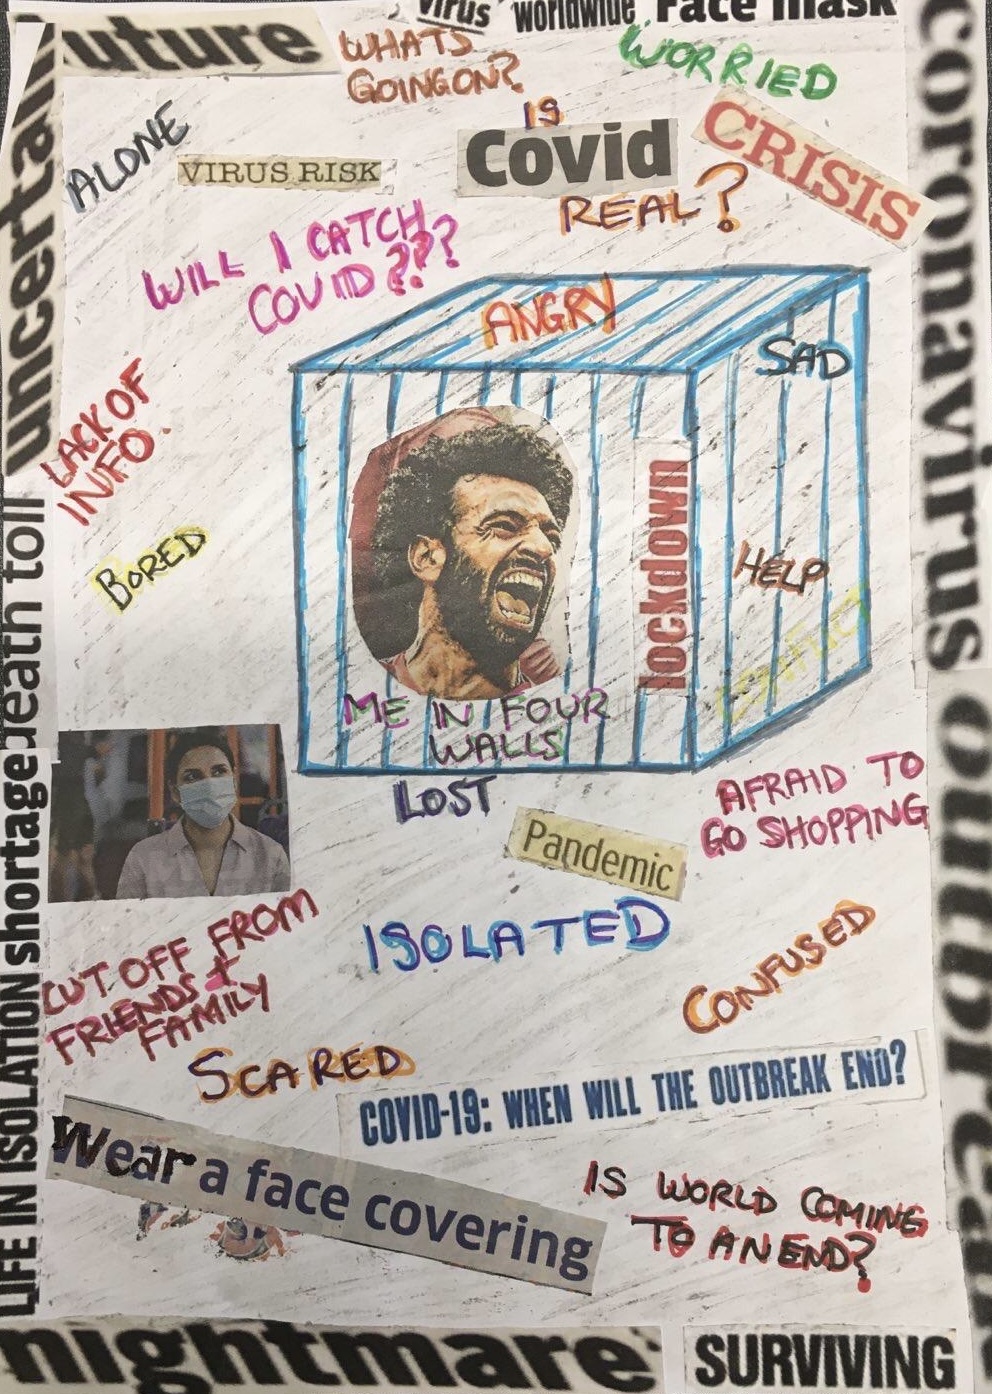 virus
worldwide
Face mask
uture
WHATS
GOING ON?
WORRIED
IS
Covid
REAL?
CRISIS
ALONE
VIRUS RISK
WILL I CATCH
COVID???
uncertain
coronavirus
ANGRY
SAD
LACK OF
INFO.
BORED
lockdown
HELP
ME IN FOUR
WALLS
LOST
death toll
shortage
LIFE IN ISOLATION
AFRAID TO
GO SHOPPING
Pandemic
ISOLATED
CUT OFF FROM
FRIENDS +
FAMILY
CONFUSED
SCARED
COVID-19: WHEN WILL THE OUTBREAK END?
Wear a face covering
IS WORLD COMING
TO AN END?
outbreak
nightmare
SURVIVING